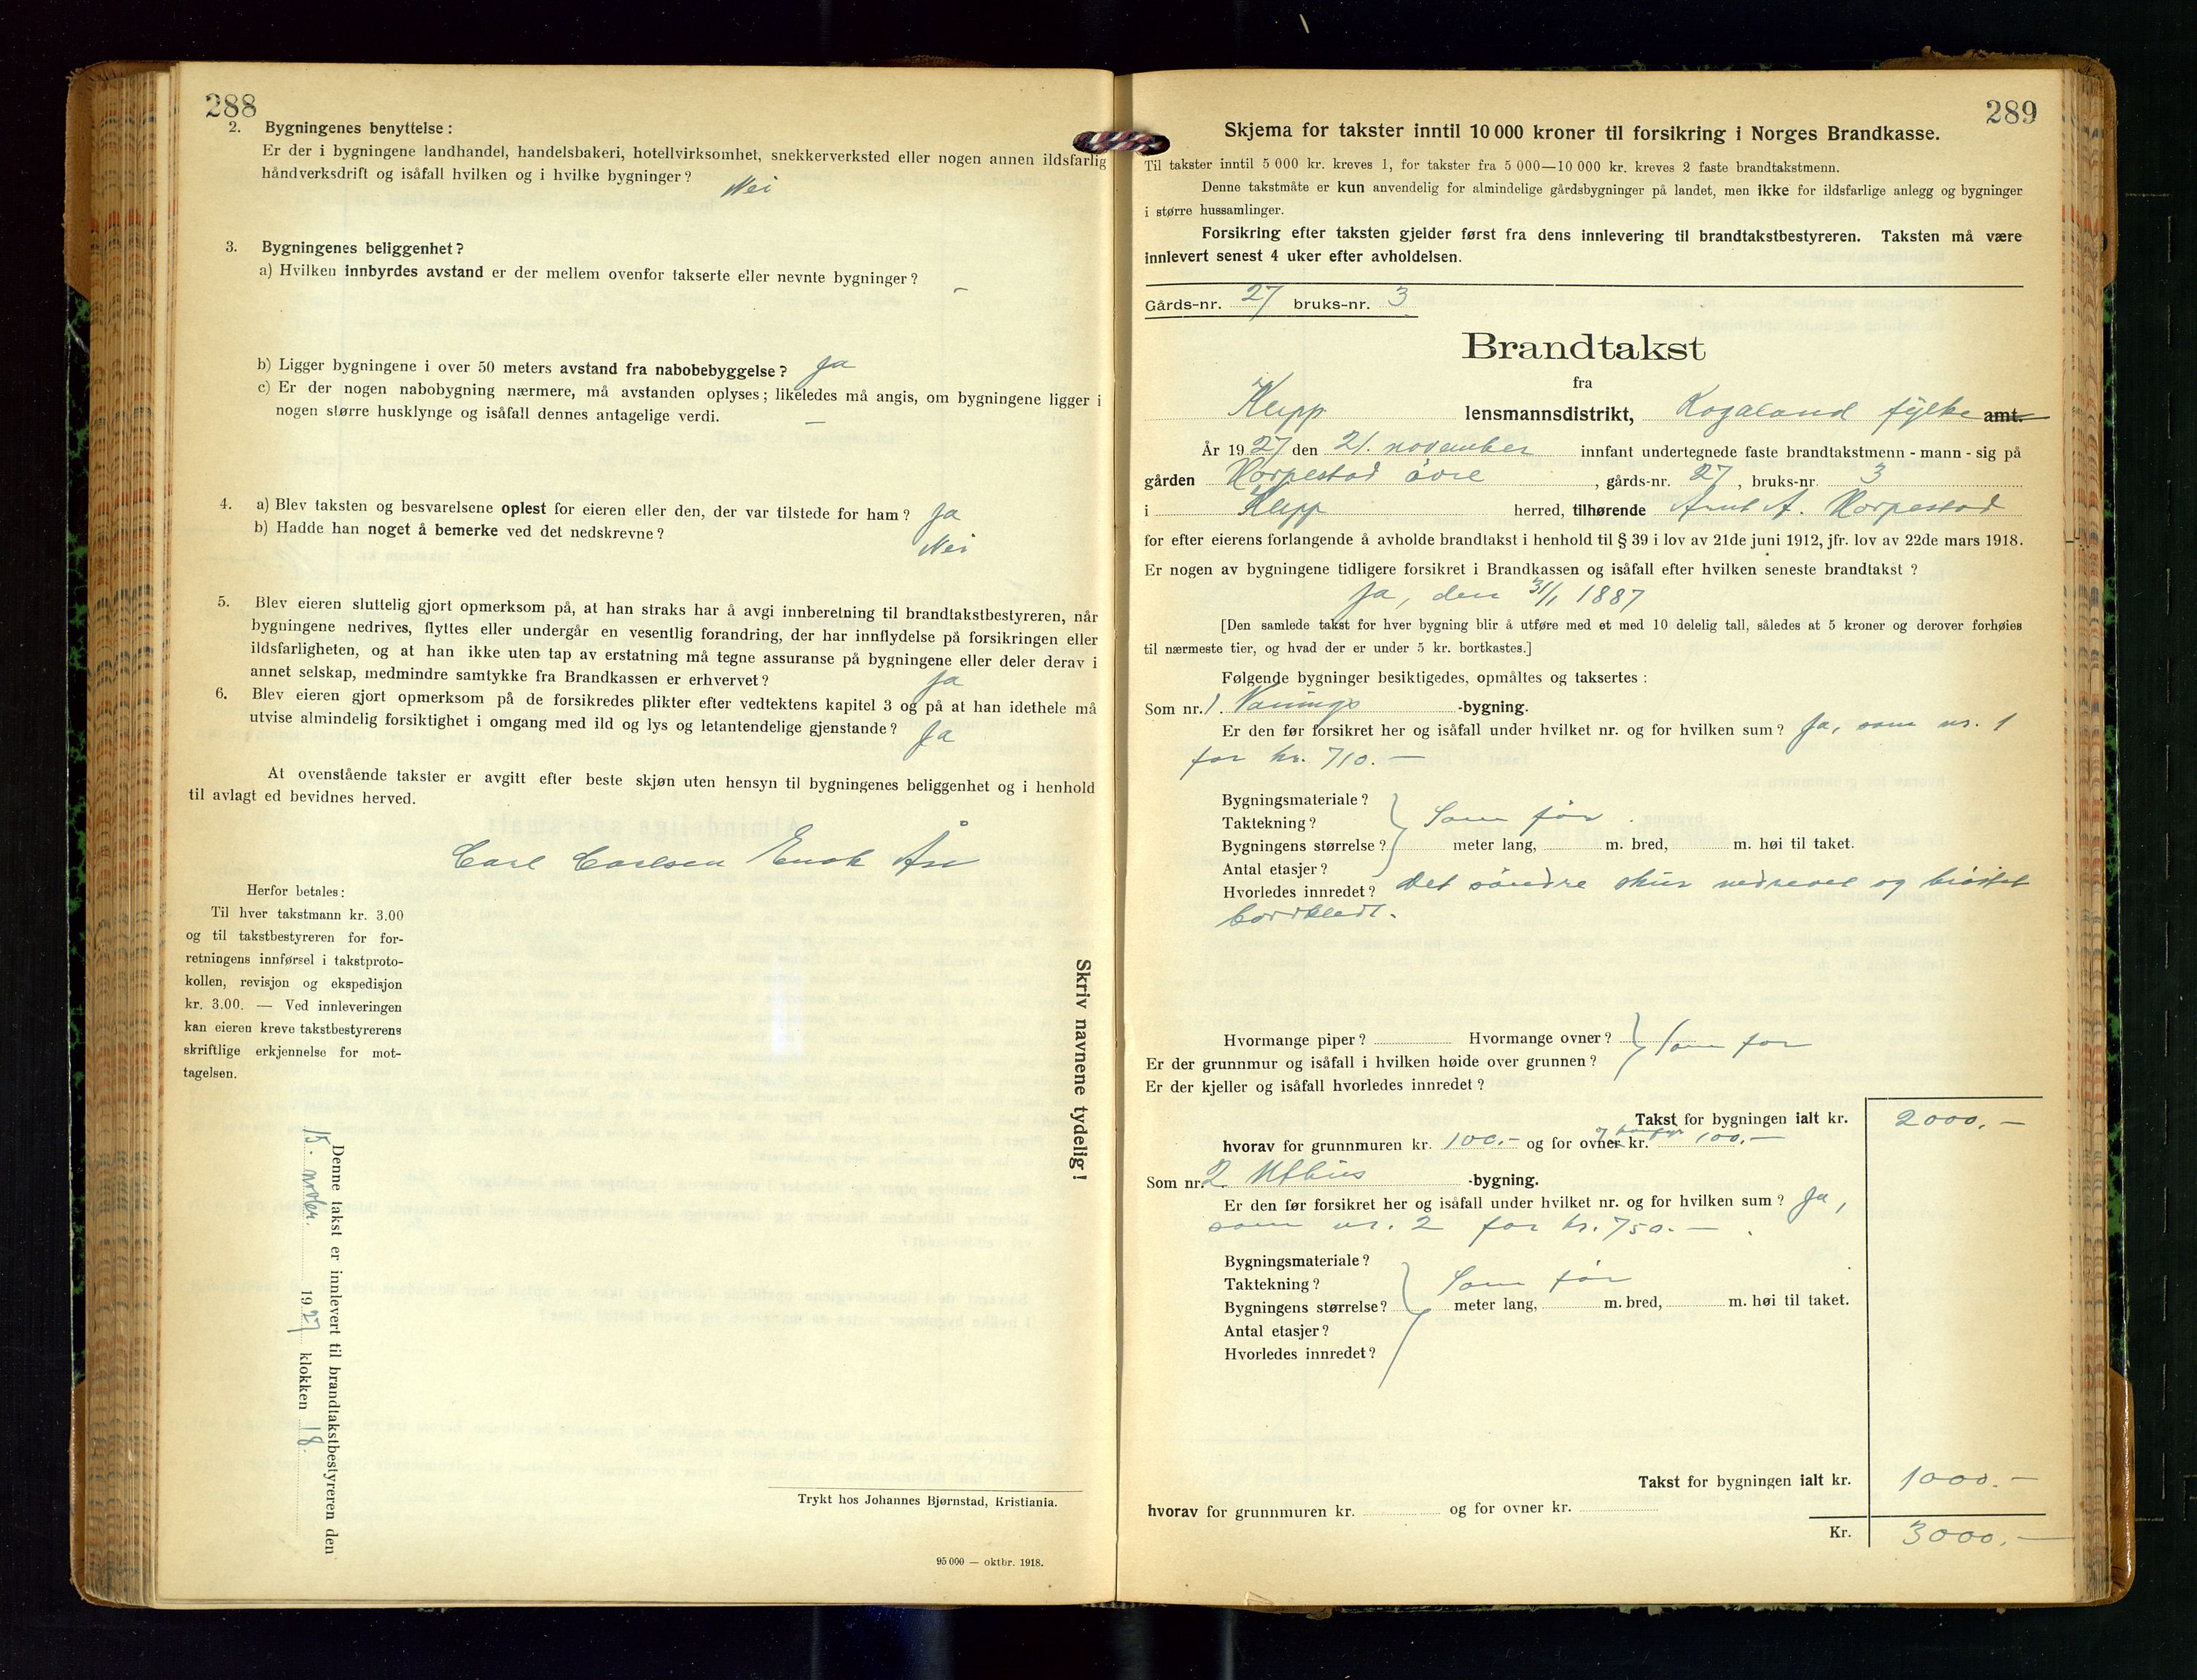 288
2. Bygningenes benyttelse:
Er der i bygningene landhandel, handelsbakeri, hotellvirksomhet, snekkerverksted eller nogen annen ildsfarlig
håndverksdrift og isåfall hvilken og i hvilke bygninger? Nei
3. Bygningenes beliggenhet?
a) Hvilken innbyrdes avstand er der mellem ovenfor takserte eller nevnte bygninger? –
b) Ligger bygningene i over 50 meters avstand fra nabobebyggelse? Ja
c) Er der nogen nabobygning nærmere, må avstanden oplyses; likeledes må angis, om bygningene ligger i
nogen større husklynge og isåfall dennes antagelige verdi. –
4. a) Blev taksten og besvarelsene oplest for eieren eller den, der var tilstede for ham? Ja
b) Hadde han noget å bemerke ved det nedskrevne? Nei
5. Blev eieren sluttelig gjort opmerksom på, at han straks har å avgi innberetning til brandtakstbestyreren, når
bygningene nedrives, flyttes eller undergår en vesentlig forandring, der har innflydelse på forsikringen eller
ildsfarligheten, og at han ikke uten tap av erstatning må tegne assuranse på bygningene eller deler derav i
annet selskap, medmindre samtykke fra Brandkassen er erhvervet? Ja
6. Blev eieren gjort opmerksom på de forsikredes plikter efter vedtektens kapitel 3 og på at han idethele må
utvise almindelig forsiktighet i omgang med ild og lys og letantendelige gjenstande? Ja
At ovenstående takster er avgitt efter beste skjøn uten hensyn til bygningenes beliggenhet og i henhold
til avlagt ed bevidnes herved.
Carl Carlsen Enok Åse
Herfor betales:
Til hver takstmann kr. 3.00
og til takstbestyreren for for-
retningens innførsel i takstproto-
kollen, revisjon og ekspedisjon
kr. 3.00. — Ved innleveringen
kan eieren kreve takstbestyrerens
skriftlige erkjennelse for mot-
tagelsen.
Skriv navnene tydelig!
Denne takst er innlevert til brandtakstbestyreren den
15. novbr. 1927 klokken 18.
Trykt hos Johannes Bjørnstad, Kristiania.
95 000 — oktbr. 1918.
289
Skjema for takster inntil 10 000 kroner til forsikring i Norges Brandkasse.
Til takster inntil 5 000 kr. kreves 1, for takster fra 5 000—10 000 kr. kreves 2 faste brandtakstmenn.
Denne takstmåte er kun anvendelig for almindelige gårdsbygninger på landet, men ikke for ildsfarlige anlegg og bygninger
i større hussamlinger.
Forsikring efter taksten gjelder først fra dens innlevering til brandtakstbestyreren. Taksten må være
innlevert senest 4 uker efter avholdelsen.
Gårds-nr. 27 bruks-nr. 3
Brandtakst
fra
Klepp lensmannsdistrikt, Rogaland fylke amt.
År 1927 den 21. november innfant undertegnede faste brandtakstmenn - mann - sig på
gården Horpestad øvre, gårds-nr. 27, bruks-nr. 3
i Klepp herred, tilhørende Arnt A. Horpestad
for efter eierens forlangende å avholde brandtakst i henhold til § 39 i lov av 21de juni 1912, jfr. lov av 22de mars 1918.
Er nogen av bygningene tidligere forsikret i Brandkassen og isåfall efter hvilken seneste brandtakst?
Ja, den 31/1 1887
[Den samlede takst for hver bygning blir å utføre med et med 10 delelig tall, således at 5 kroner og derover forhøies
til nærmeste tier, og hvad der er under 5 kr. bortkastes.]
Følgende bygninger besiktigedes, opmåltes og taksertes:
Som nr. 1. Vånings -bygning.
Er den før forsikret her og isåfall under hvilket nr. og for hvilken sum? Ja, som nr. 1
for kr. 710.–
Bygningsmateriale?
Taktekning? Som før
Bygningens størrelse? meter lang, m. bred, m. høi til taket.
Antal etasjer?
Hvorledes innredet? Det søndre skur nedrevet og brøstet
bordkledt.
Hvormange piper? Hvormange ovner? Som før
Er der grunnmur og isåfall i hvilken høide over grunnen?
Er der kjeller og isåfall hvorledes innredet?
Takst for bygningen ialt kr. 2000.–
hvorav for grunnmuren kr. 100.– og for ovner og komfyr kr. 100.–
Som nr. 2. Uthus -bygning.
Er den før forsikret her og isåfall under hvilket nr. og for hvilken sum? Ja,
som nr. 2 for kr. 750.–
Bygningsmateriale?
Taktekning? Som før
Bygningens størrelse? meter lang, m. bred, m. høi til taket.
Antal etasjer?
Hvorledes innredet?
Takst for bygningen ialt kr. 1000.–
hvorav for grunnmuren kr. og for ovner kr.
Kr. 3000.–